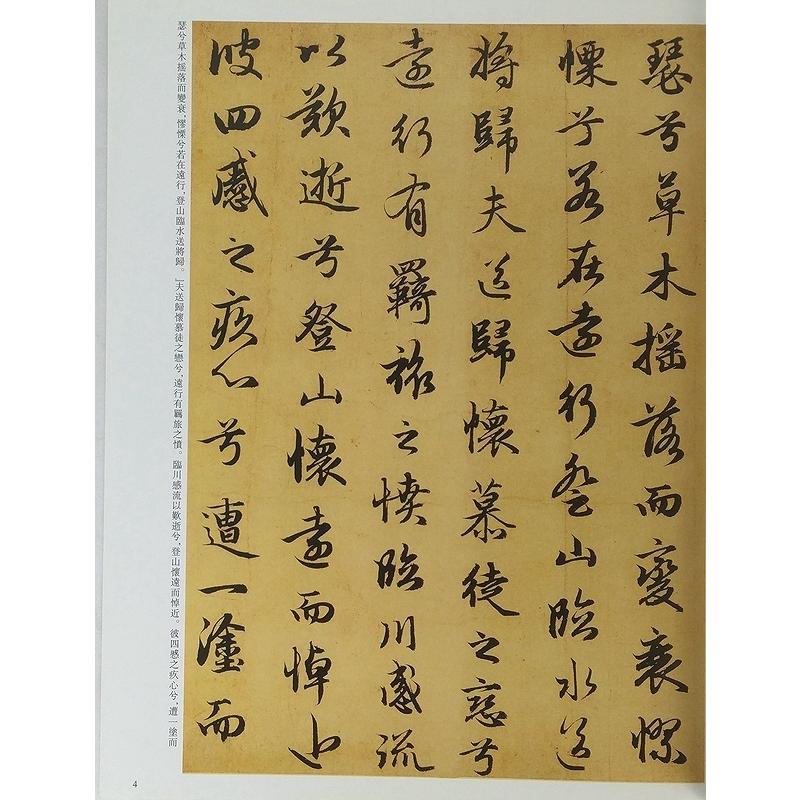 瑟兮草木摇落而變衰憀
慄兮若在遠行登山臨水送
將歸夫送歸懷慕徒之戀兮
遠行有羈旅之憤臨川感流
以歎逝兮登山懷遠而悼近
彼四慼之疚心兮遭一塗而
瑟兮草木摇落而變衰,憀慄兮若在遠行,登山臨水送將歸。」夫送歸懷慕徒之戀兮,遠行有羈旅之憤。臨川感流以歎逝兮,登山懷遠而悼近。彼四慼之疚心兮,遭一塗而
4